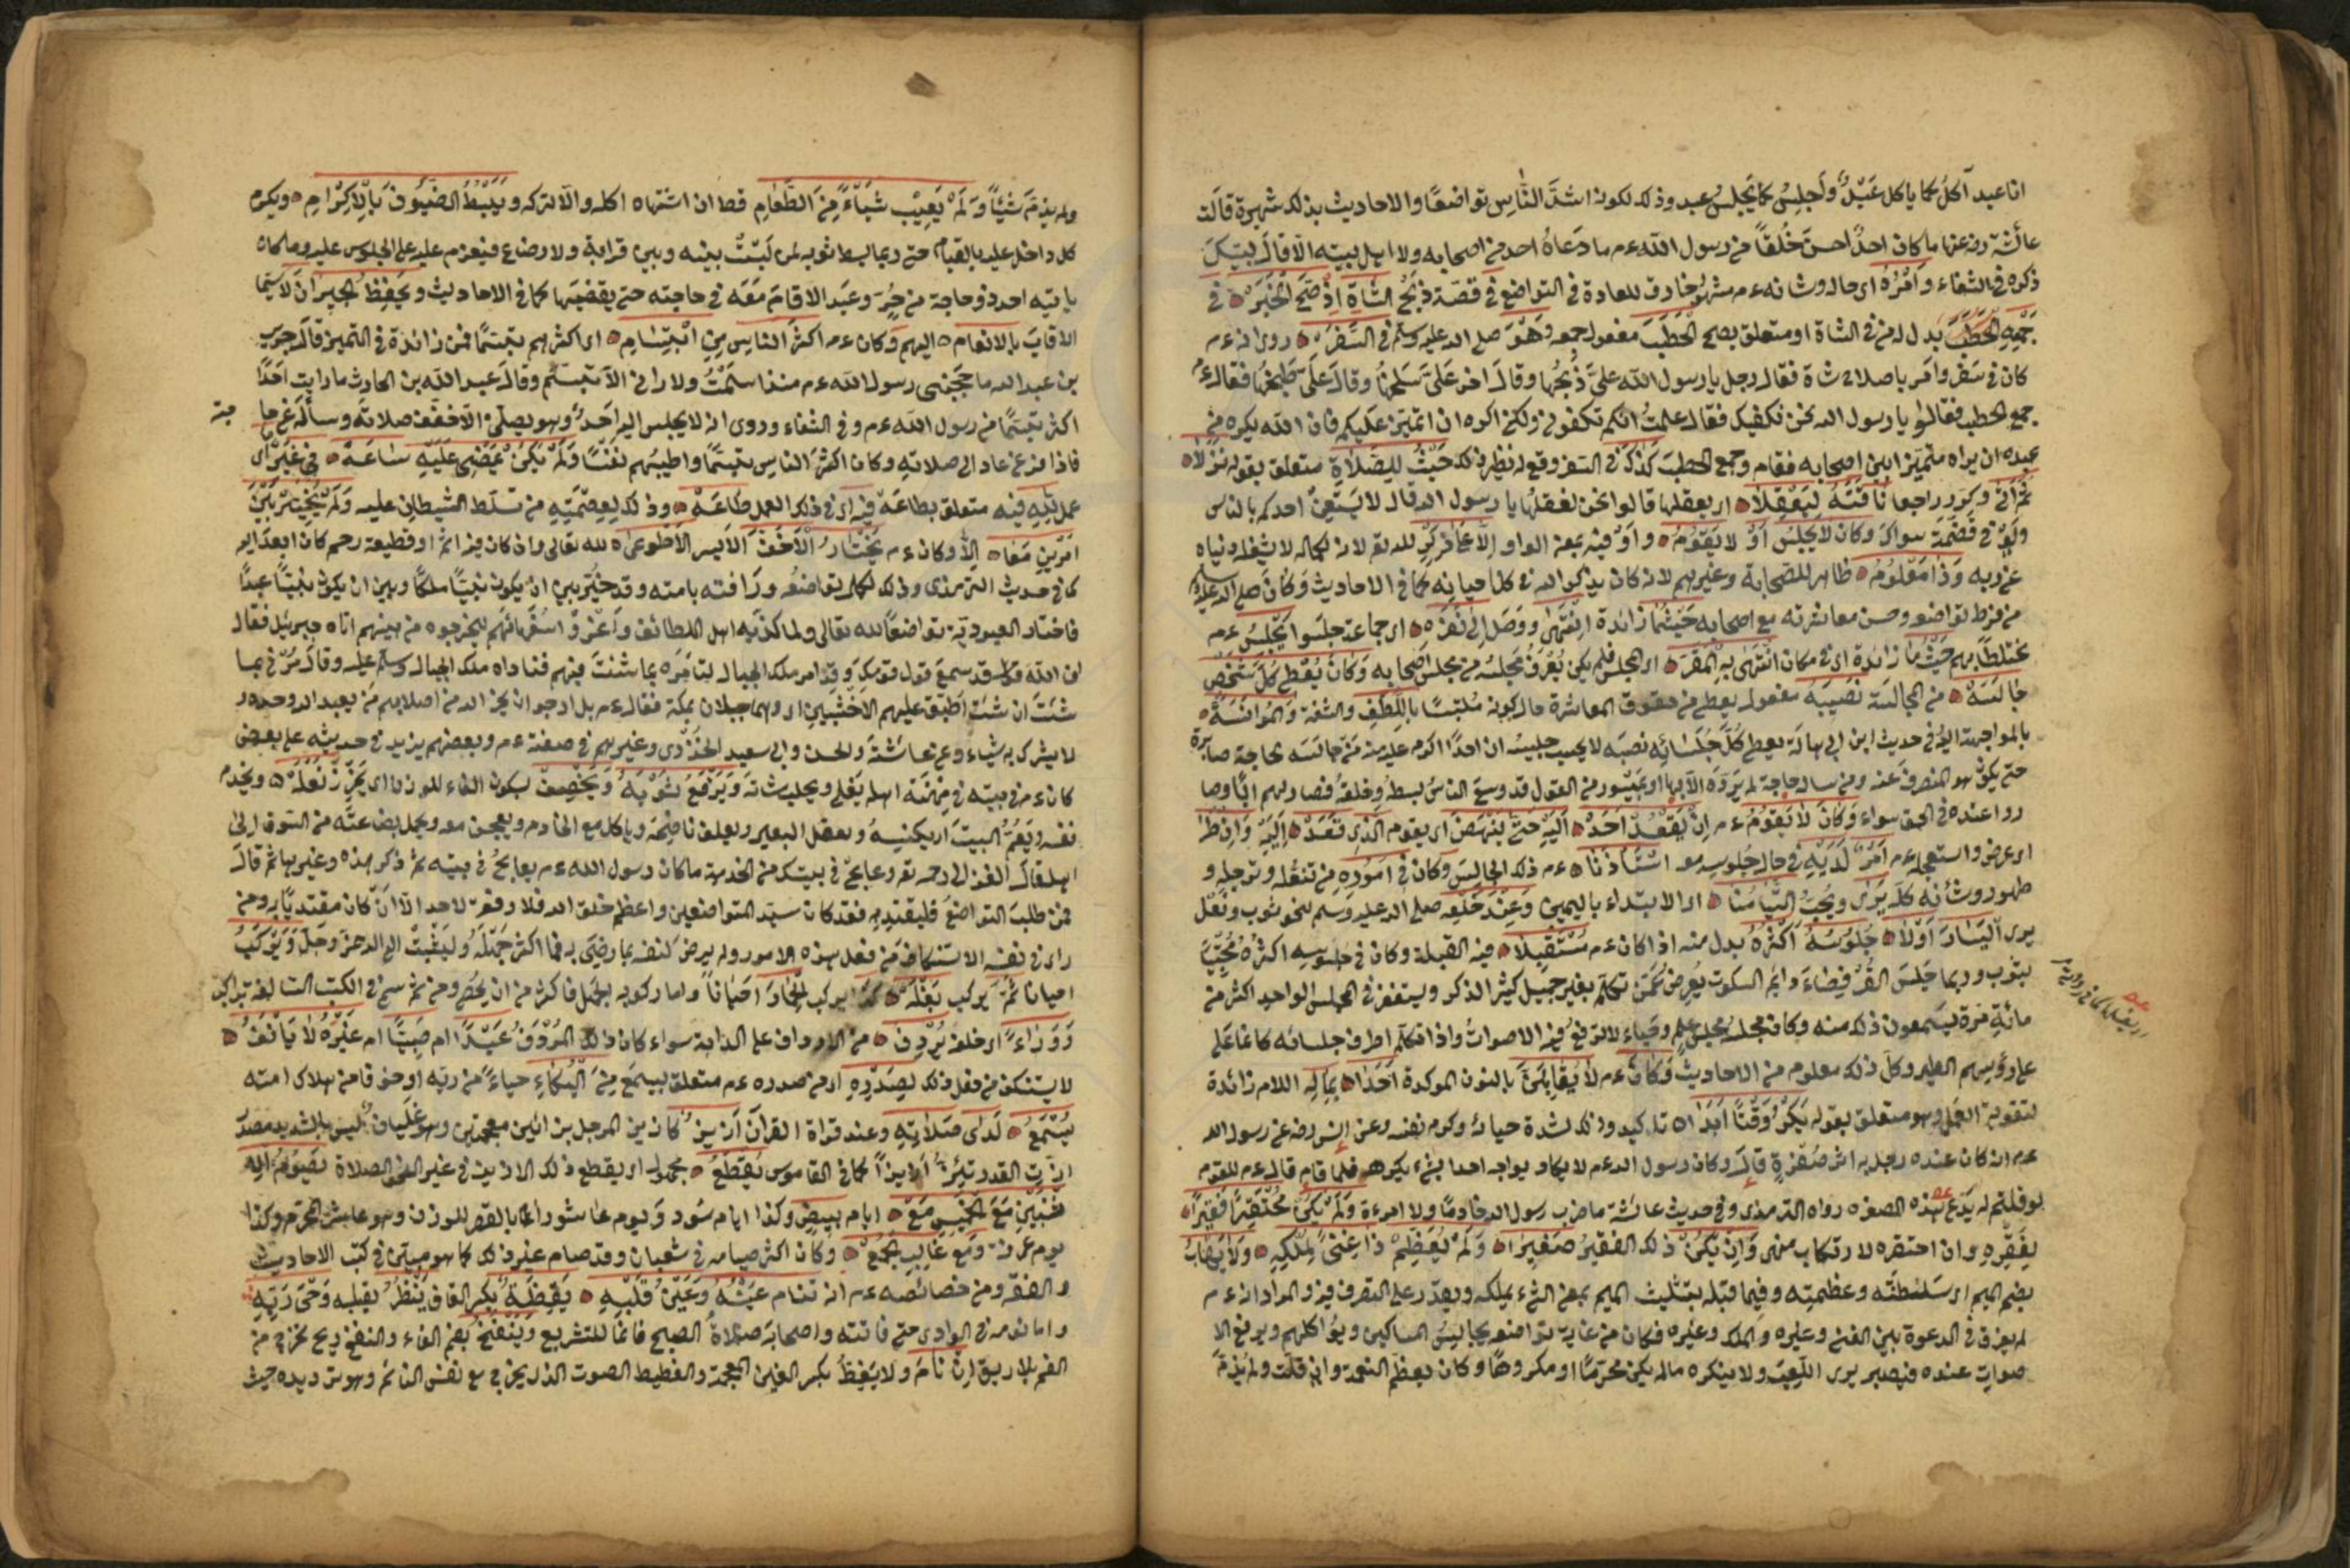 انا عبد آكل كما ياكل عبد واجلس كما يجلس عبد وذلك لكونه اشد الناس تواضعا والاحاديث بذلك شهيرة قالت
عائشة رضه عنها ما كان احد احسن خلقا من رسول الله عم ما دعاه احد من اصحابه ولا اهل بيته الا قال لبيك
ذكره في الشفاء وامره اى حاله وشانه عم مشهور خارق للعادة في التواضع في قصة ذبح الشاة اذ صح الخبر في
جمعه الحطب بدل له من في الشاة او متعلق بصح الحطب مفعول جمعه وهو صلى الله عليه وسلم في السفر روى انه عم
كان في سفر وامر باصلاح شاة فقال رجل يا رسول الله على ذبحها وقال اخر على سلخها وقال على طبخها فقال عم
جمع الحطب فقالوا يا رسول الله نحن نكفيك فقال علمت انكم تكفوني ولكن اكره ان اتميز عليكم فان الله يكره من
عبده ان يراه متميزا بين اصحابه فقام وجمع الحطب كذلك في السفر وقع له نظير ذلك حيث للصلاة متعلق بقوله نزلا
ثم اتى وكرر راجعا ناقته ليعقلا اى يعقلها قالوا نحن نعقلها يا رسول الله قال لا يستعن احدكم بالناس
ولو في قضمة سواك وكان لا يجلس او لا يقوم واو فيه بمعنى الواو الا على ذكر لله تع لانه لكماله لا يشغله دنياه
عن ربه وذا معلوم ظاهر للصحابة وغيرهم لانه كان يذكر الله في كل احيانه كما في الاحاديث وكان صلى الله عليه وسلم
من فرط تواضعه وحسن معاشرته مع اصحابه حيثما زائدة انتهى ووصل الى نفره اى جماعة جلسوا يجلس عم
مختلطا بهم حيث ما زائدة اى في مكان انتهى به المقر اى المجلس فلم يكن يعرف مجلسه من مجلس اصحابه وكان يعطى كل شخص
جالسه من المجالسة نصيبه مفعول يعطى من حقوق المعاشرة حال كونه متلبسا باللطف والشفقة والمؤانسة
بالمواجهة اليه في حديث ابن ابي هالة يعطى كل جلسائه نصيبه لا يحسب جليسه ان احدا اكرم عليه منه من جالسه لحاجة صابره
حتى يكون هو المنصرف عنه ومن ساله حاجة لم يرده الا بها او بميسور من القول قد وسع الناس بسطه وخلقه فصار لهم ابا وصا
روا عنده في الحق سواء وكان لا يقوم عم ان يقعد احد اليه حتى ينهض اى يقوم الذى قعد اليه وان طرا
اى عرض واستعجله عم امر لديه في حال جلوسه معه استاذنا عم ذلك الجالس وكان في اموره من تنعله وترجله و
طهوره وشانه كله يرى ويحب التيامنا اى الابتداء باليمين وعند خلعه صلى الله عليه وسلم لنحو ثوب ونعل
يرى اليسار اولا جلوسه اكثره بدل منه اذا كان عم مستقبلا فيه القبلة وكان في جلوسه اكثره محتبيا
بثوب وربما جلس القرفصاء دائم السكوت يعرض عمن تكلم بغير جميل كثير الذكر ويستغفر في المجلس الواحد اكثر من
مائة مرة يسمعون ذلك منه وكان مجلسه مجلس علم وحياء لا ترفع فيه الاصوات واذا تكلم اطرق جلسائه كانما على
على رؤسهم الطير وكل ذلك معلوم من الاحاديث وكان عم لا يقابلن بالنون الموكدة احدا بماله اللام زائدة
لتقوية العمل وهو متعلق بقوله يكره وقتا ابدا تاكيد وذلك لشدة حيائه وكرم نفسه وعن انس رضه عن رسول الله
عم انه كان عنده رجل به اثر صفرة قال وكان رسول الله عم لا يكاد يواجه احدا بشئ يكرهه فلما قام قال عم للقوم
لو قلتم له يدع هذه الصفرة رواه الترمذى وفي حديث عائشة ما ضرب رسول الله خادما ولا امرءة ولم يكن محتقرا فقيرا
بفقره وان احتقره لارتكاب منهى وان يكن ذلك الفقير صغيرا ولم يعظم ذا غنى لملكه ولا يهاب
بضم الميم اى سلطنته وعظمته وفيما قبله بتثليث الميم بمعنى الشئ يملكه ويقدر على التصرف فيه والمراد انه عم
لم يفرق في الدعوة بين الغنى وغيره والملك وغيره فكان من غاية تواضعه يجالس المساكين ويؤاكلهم ويرفع الا
صوات عنده فيصبر يرى اللعب ولا ينكره ما لم يكن محرما او مكروها وكان يعظم النعمة وان قلت ولم يذم
ولم يذم شيئا ولم يعيب شياء من الطعام قط ان اشتهاه اكله والا تركه ويبسط الضيوف بالاكرام ويكرم
كل داخل عليه بالقيام حتى ربما بسط ثوبه لمن ليست بينه وبين قرابة ولا رضاع فيعزم عليه على الجلوس عليه وما كان
ياتيه احد ذو حاجة من حر وعبد الا قام معه في حاجته حتى يقضيها كما في الاحاديث ويحفظ الجيران لا سيما
الاقارب بالانعام اليهم وكان عم اكثر الناس من ابتسام اى اكثرهم تبسما فمن زائدة في التمييز قال جرير
بن عبد الله ما حجبنى رسول الله عم منذ اسلمت ولا رانى الا تبسم وقال عبد الله بن الحارث ما رايت احدا
اكثر تبسما من رسول الله عم وفي الشفاء وروى انه لا يجلس اليه احد وهو يصلى الا خفف صلاته وساله عن حا جته
فاذا فرغ عاد الى صلاته وكان اكثر الناس تبسما واطيبهم نفسا ولم يكن يمضى عليه ساعة في غير اى
عمل لله فيه متعلق بطاعة فيه اى في ذلك العمل طاعة وذلك لعصمته من تسلط الشيطان عليه ولم يخير بين
امرين معا الا وكان عم يختار الاخف الايسر الاطوعا لله تعالى وان كان فيه اثم او قطيعة رحم كان ابعد اليه
كما في حديث الترمذى وذلك لكمال تواضعه ورافته بامته وقد خير بين ان يكون نبيا ملكا وبين ان يكون نبيا عبدا
فاختار العبودية تواضعا لله تعالى ولما كذبه اهل الطائف واغروا سفهائهم ليخرجوه من بينهم اتاه جبرئيل فقال
ان الله قد سمع قول قومك وقد امر ملك الجبال لتامره بما شئت فيهم فناداه ملك الجبال وسلم عليه وقال مرنى بما
شئت ان شئت اطبق عليهم الاخشبين اى وهما جبلان بمكة فقال عم بل ارجو ان يخرج الله من اصلابهم من يعبد الله وحده و
لا يشرك به شيئا وعن عائشة والحسن وابي سعيد الخدرى وغيرهم في صفته عم وبعضهم يزيد في حديثه على بعض
كان عم في بيته في مهنة اهله يفلى ويحلب شاته ويرقع لثوبه ويخصف بسكون الفاء للوزن اى يخرز نعله ويخدم
نفسه ويقم البيت اى يكنسه ويعقل البعير ويعلف ناضحه وياكل مع الخادم ويعجن معه ويحمل بضاعته من السوق الى
اهله قال الغزالى رحمه تع وعابه في بيتك من الخدمة ما كان رسول الله عم يعالج في بيته ثم ذكر هذه وغيرها ثم قال
فمن طلب التواضع فليقتد به فقد كان سيد المتواضعين واعظم خلق الله فلا رفعة لاحد الا ان كان مقتديا به ومن
راى في نفسه الاستنكاف من فعل هذه الامور ولم يرض لنفسه بما رضى به فما اكثر جهله وليثبت الى الله عز وجل ويركب
احيانا ثم يركب بغله كذا يركب الحمار احيانا واما ركوبه الجمل فاكثر من ان يحصر ومن ثم سمى في الكتب السالفة براكب
ووراء اى خلفه يردف من الارداف على الدابة سواء كان ذلك المردف عبدا ام صبيا ام غيره لا يانف
لا يستنكف من فعل ذلك لصدره اى من صدره عم متعلق بيسمع من البكاء حياء من ربه او خوفا من هلاك امته
يستمع لدى صلاته وعند قراة القران ازيز كازيز المرجل بزائين معجمتين وهو غليان ليس بالشديد مصدر
ازت القدر تئز ازيزا كما في القاموس يقطع مجهول اى يقطع ذلك الازيز في غير الصلاة يصوم الا
ثنين مع الخميس مع ايام بيض وكذا ايام سود ويوم عاشورا بالقصر للوزن وهو عاشر المحرم وكذا
يوم عرفة ومع غالب الجمع وكان اكثر صيامه في شعبان وقد صام غير ذلك كما هو مبين في كتب الاحاديث
والفقه ومن خصائصه عم انه تنام عينه وعين قلبه يقظة بكسر القاف ينظر بقلبه وحى ربه
واما نومه في الوادى حتى فاتته واصحابه صلاة الصبح فانما للتشريع وينفخ بضم الفاء والنفخ ريح تخرج من
الفم بلا ريق ان نام ولا يغط بكسر الغين المعجمة والغطيط الصوت الذى يخرج مع نفس النائم وهو ترديده حيث